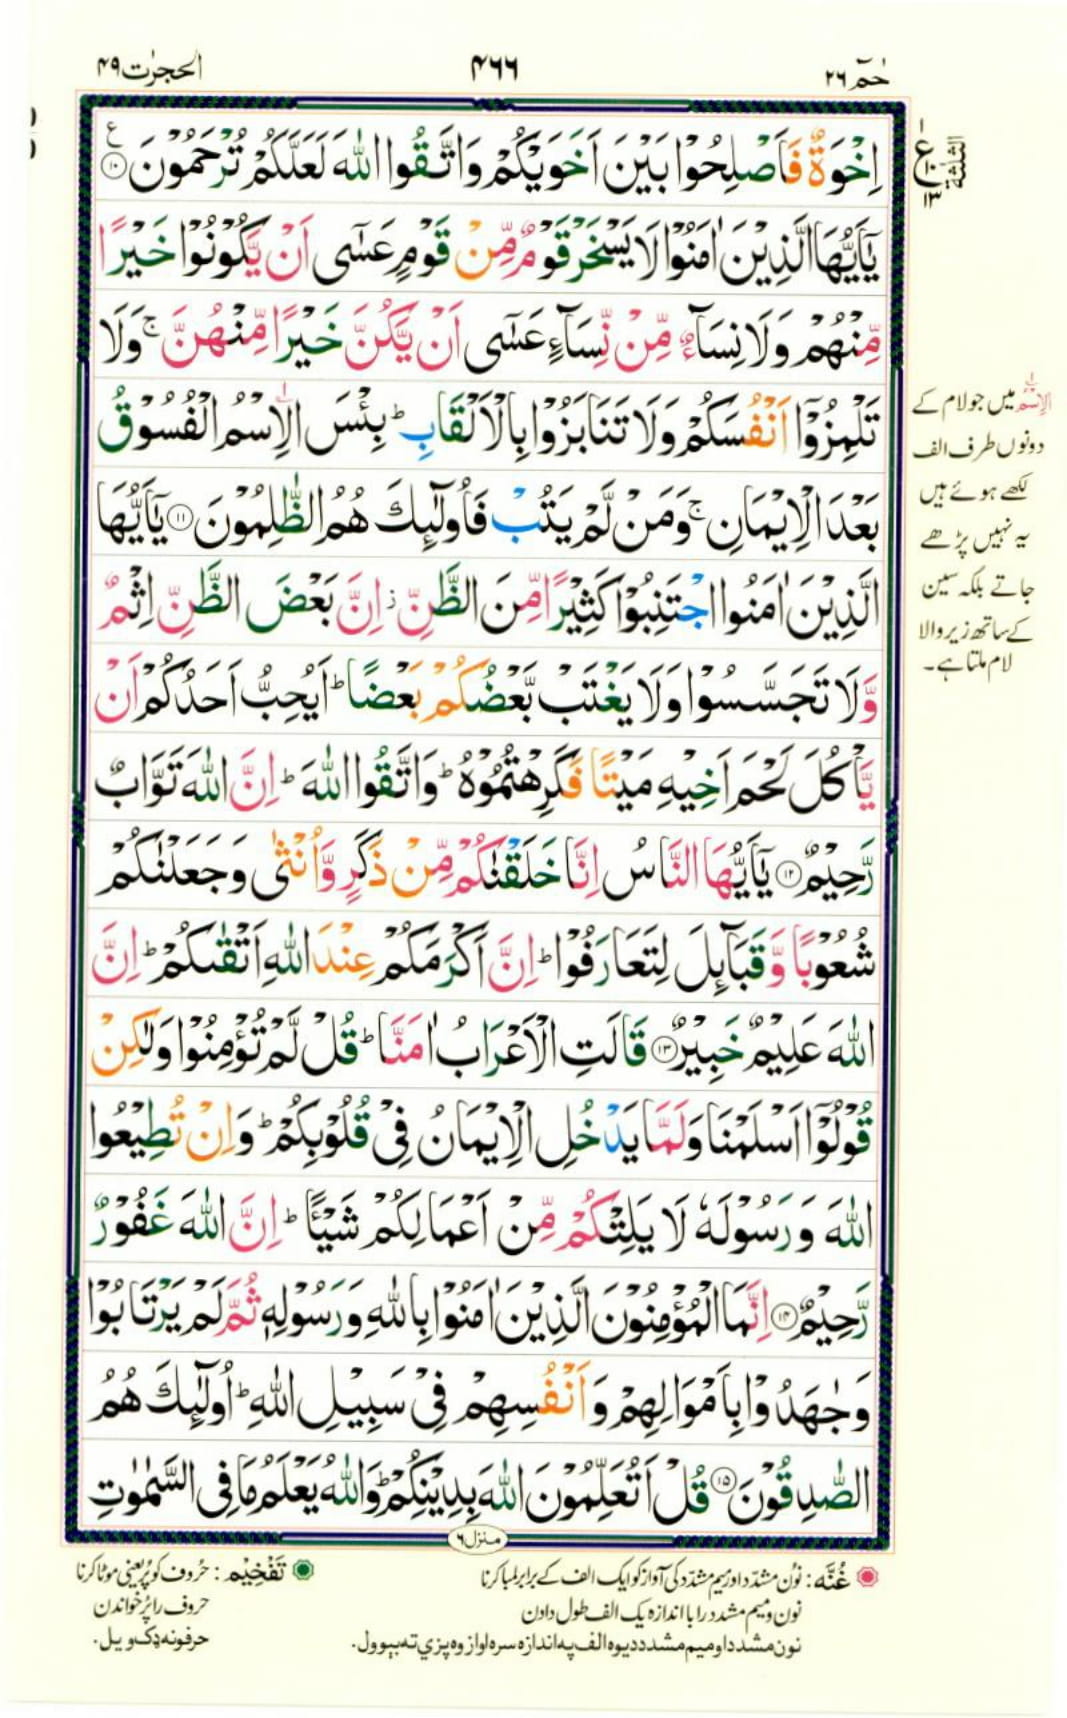 حٰمٓ ٢٦
٤٦٦
الحجرٰت ٤٩
اِخْوَةٌ فَاَصْلِحُوْا بَيْنَ اَخَوَيْكُمْ وَاتَّقُوا اللّٰهَ لَعَلَّكُمْ تُرْحَمُوْنَ ۝١٠ ع
يٰٓاَيُّهَا الَّذِيْنَ اٰمَنُوْا لَا يَسْخَرْ قَوْمٌ مِّنْ قَوْمٍ عَسٰٓى اَنْ يَّكُوْنُوْا خَيْرًا
مِّنْهُمْ وَلَا نِسَآءٌ مِّنْ نِّسَآءٍ عَسٰٓى اَنْ يَّكُنَّ خَيْرًا مِّنْهُنَّ ۚ وَلَا
تَلْمِزُوْٓا اَنْفُسَكُمْ وَلَا تَنَابَزُوْا بِالْاَلْقَابِ ؕ بِئْسَ الِاسْمُ الْفُسُوْقُ
بَعْدَ الْاِيْمَانِ ۚ وَمَنْ لَّمْ يَتُبْ فَاُولٰٓئِكَ هُمُ الظّٰلِمُوْنَ ۝١١ يٰٓاَيُّهَا
الَّذِيْنَ اٰمَنُوا اجْتَنِبُوْا كَثِيْرًا مِّنَ الظَّنِّ ؗ اِنَّ بَعْضَ الظَّنِّ اِثْمٌ
وَّلَا تَجَسَّسُوْا وَلَا يَغْتَبْ بَّعْضُكُمْ بَعْضًا ؕ اَيُحِبُّ اَحَدُكُمْ اَنْ
يَّاْكُلَ لَحْمَ اَخِيْهِ مَيْتًا فَكَرِهْتُمُوْهُ ؕ وَاتَّقُوا اللّٰهَ ؕ اِنَّ اللّٰهَ تَوَّابٌ
رَّحِيْمٌ ۝١٢ يٰٓاَيُّهَا النَّاسُ اِنَّا خَلَقْنٰكُمْ مِّنْ ذَكَرٍ وَّاُنْثٰى وَجَعَلْنٰكُمْ
شُعُوْبًا وَّقَبَآئِلَ لِتَعَارَفُوْا ؕ اِنَّ اَكْرَمَكُمْ عِنْدَ اللّٰهِ اَتْقٰىكُمْ ؕ اِنَّ
اللّٰهَ عَلِيْمٌ خَبِيْرٌ ۝١٣ قَالَتِ الْاَعْرَابُ اٰمَنَّا ؕ قُلْ لَّمْ تُؤْمِنُوْا وَلٰكِنْ
قُوْلُوْٓا اَسْلَمْنَا وَلَمَّا يَدْخُلِ الْاِيْمَانُ فِيْ قُلُوْبِكُمْ ؕ وَاِنْ تُطِيْعُوا
اللّٰهَ وَرَسُوْلَهٗ لَا يَلِتْكُمْ مِّنْ اَعْمَالِكُمْ شَيْـًٔا ؕ اِنَّ اللّٰهَ غَفُوْرٌ
رَّحِيْمٌ ۝١٤ اِنَّمَا الْمُؤْمِنُوْنَ الَّذِيْنَ اٰمَنُوْا بِاللّٰهِ وَرَسُوْلِهٖ ثُمَّ لَمْ يَرْتَابُوْا
وَجٰهَدُوْا بِاَمْوَالِهِمْ وَاَنْفُسِهِمْ فِيْ سَبِيْلِ اللّٰهِ ؕ اُولٰٓئِكَ هُمُ
الصّٰدِقُوْنَ ۝١٥ قُلْ اَتُعَلِّمُوْنَ اللّٰهَ بِدِيْنِكُمْ ؕ وَاللّٰهُ يَعْلَمُ مَا فِي السَّمٰوٰتِ
منزل ٦
ع
١٠
١٣
الثلثة
الِاسْمُ میں جو لام کے
دونوں طرف الف
لکھے ہوئے ہیں
یہ نہیں پڑھے
جاتے بلکہ سین
کے ساتھ زیر والا
لام ملتا ہے۔
غُنَّه : نوُن مشدّد اور میم مشدّد کی آواز کو ایک الف کے برابر لمبا کرنا
نون و میم مشدد را با اندازه یک الف طول دادن
نون مشدد او میم مشدد دیوه الف په اندازه سره اواز وه پزي ته بیوول.
تَفْخِيْم : حُروف کو پُر یعنی موٹا کرنا
حروف را پُر خواندن
حرفونه ډک ویل.